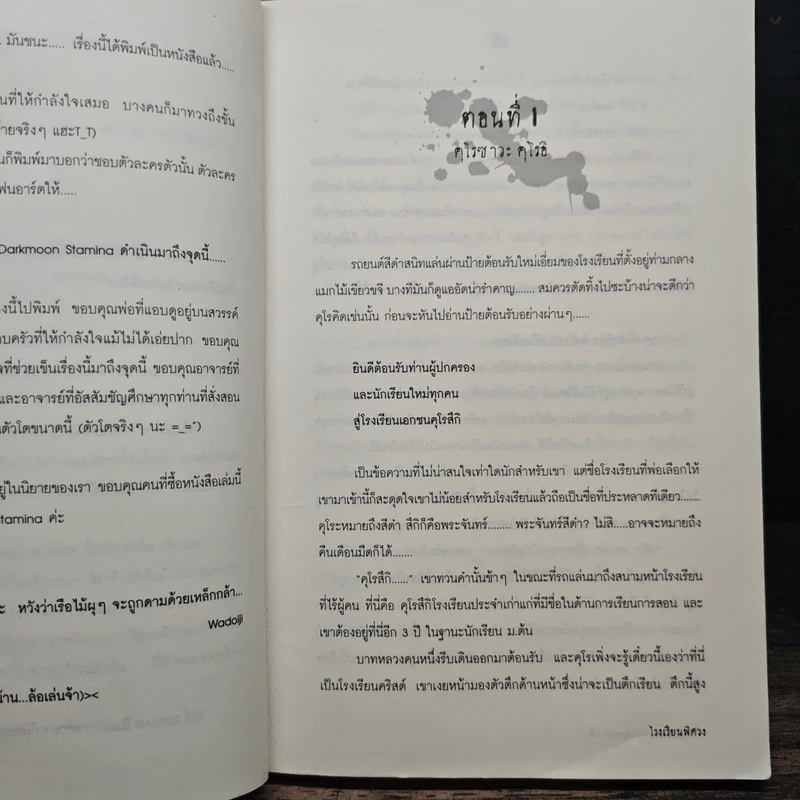 มันชนะ..... เรื่องนี้ได้พิมพ์เป็นหนังสือแล้ว.....
ที่ให้กำลังใจเสมอ บางคนก็มาทวงถึงขั้น
จริงๆ แฮะT_T)
ก็พิมพ์มาบอกว่าชอบตัวละครตัวนั้น ตัวละคร
ฟนอาร์ตให้.....
Darkmoon Stamina ดำเนินมาถึงจุดนี้......
งนี้ไปพิมพ์ ขอบคุณพ่อที่แอบดูอยู่บนสวรรค์
บครัวที่ให้กำลังใจแม้ไม่ได้เอ่ยปาก ขอบคุณ
จที่ช่วยเข็นเรื่องนี้มาถึงจุดนี้ ขอบคุณอาจารย์ที่
และอาจารย์ที่อัสสัมชัญศึกษาทุกท่านที่สั่งสอน
นตัวโตขนาดนี้ (ตัวโตจริงๆ นะ =_=")
ยู่ในนิยายของเรา ขอบคุณคนที่ซื้อหนังสือเล่มนี้
Stamina ค่ะ
ะ หวังว่าเรือไม้ผุๆ จะถูกดามด้วยเหล็กกล้า...
Wadoiji
้าน...ล้อเล่นจ้า)><
ตอนที่ 1
คุโรซาวะ คุโรอิ
รถยนต์สีดำสนิทแล่นผ่านป้ายต้อนรับใหม่เอี่ยมของโรงเรียนที่ตั้งอยู่ท่ามกลาง
แมกไม้เขียวขจี บางทีมันก็ดูแออัดน่ารำคาญ....... สมควรตัดทิ้งไปซะบ้างน่าจะดีกว่า
คุโรคิดเช่นนั้น ก่อนจะหันไปอ่านป้ายต้อนรับอย่างผ่านๆ......
ยินดีต้อนรับท่านผู้ปกครอง
และนักเรียนใหม่ทุกคน
สู่โรงเรียนเอกชนคุโรสึกิ
เป็นข้อความที่ไม่น่าสนใจเท่าใดนักสำหรับเขา แต่ชื่อโรงเรียนที่พ่อเลือกให้
เขามาเข้านี้ก็สะดุดใจเขาไม่น้อยสำหรับโรงเรียนแล้วถือเป็นชื่อที่ประหลาดทีเดียว.......
คุโระหมายถึงสีดำ สึกิก็คือพระจันทร์........ พระจันทร์สีดำ? ไม่สิ.....อาจจะหมายถึง
คืนเดือนมืดก็ได้.......
"คุโรสึกิ......" เขาทวนคำนั้นช้าๆ ในขณะที่รถแล่นมาถึงสนามหน้าโรงเรียน
ที่ไร้ผู้คน ที่นี่คือ คุโรสึกิโรงเรียนประจำเก่าแก่ที่มีชื่อในด้านการเรียนการสอน และ
เขาต้องอยู่ที่นี่อีก 3 ปี ในฐานะนักเรียน ม.ต้น
บาทหลวงคนหนึ่งรีบเดินออกมาต้อนรับ และคุโรเพิ่งจะรู้เดี๋ยวนี้เองว่าที่นี่
เป็นโรงเรียนคริสต์ เขาเงยหน้ามองตัวตึกด้านหน้าซึ่งน่าจะเป็นตึกเรียน ตึกนี้สูง
โรงเรียนพิศวง